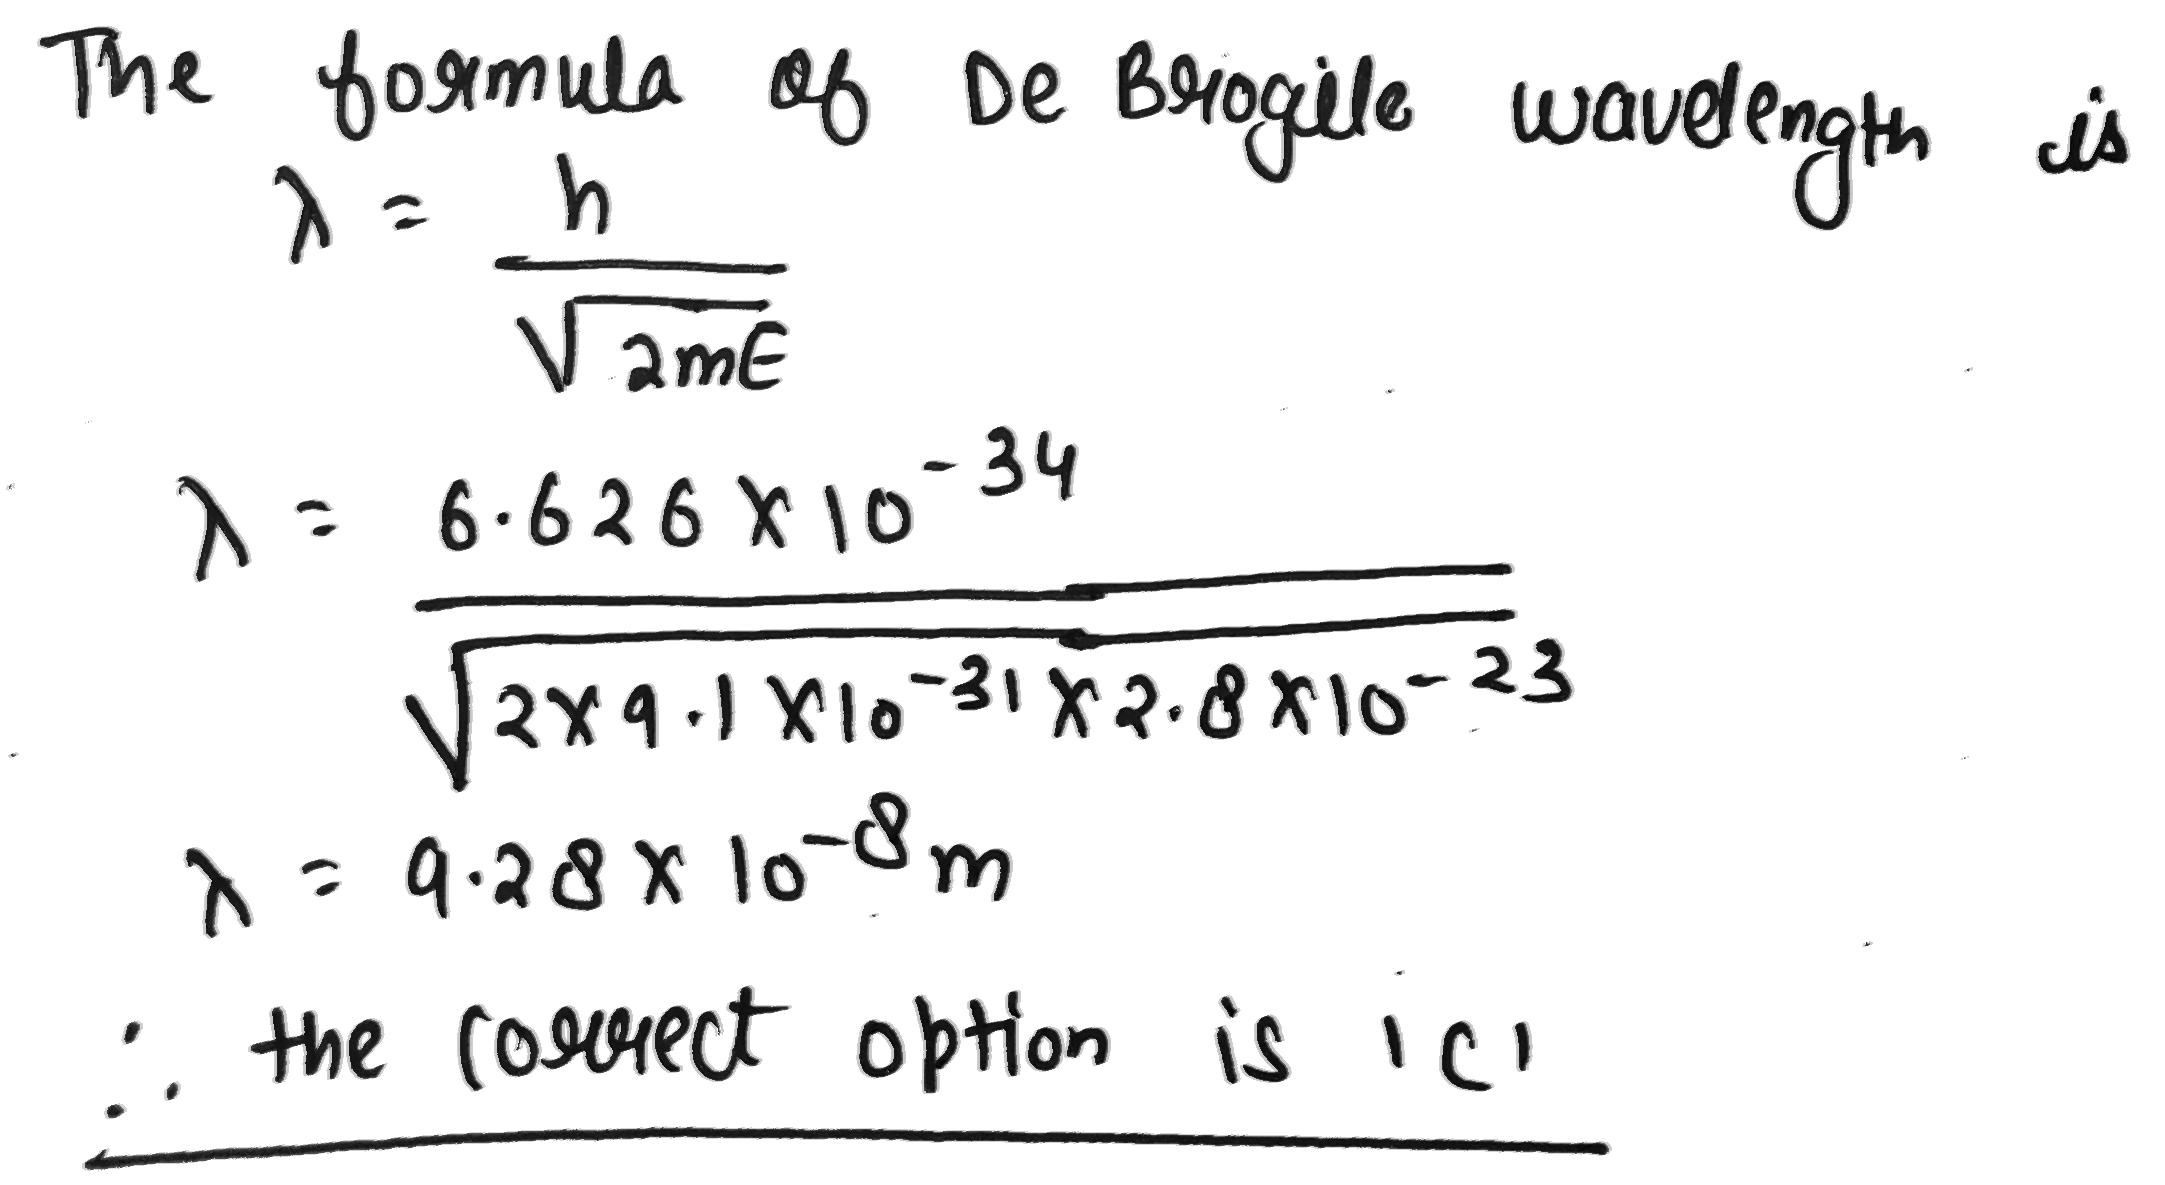 The formula of De Brogile wavelength is
λ = h / √2mE
λ = 6.626 × 10⁻³⁴ / √2×9.1×10⁻³¹×2.8×10⁻²³
λ = 9.28 × 10⁻⁸ m
∴ the correct option is 'C'